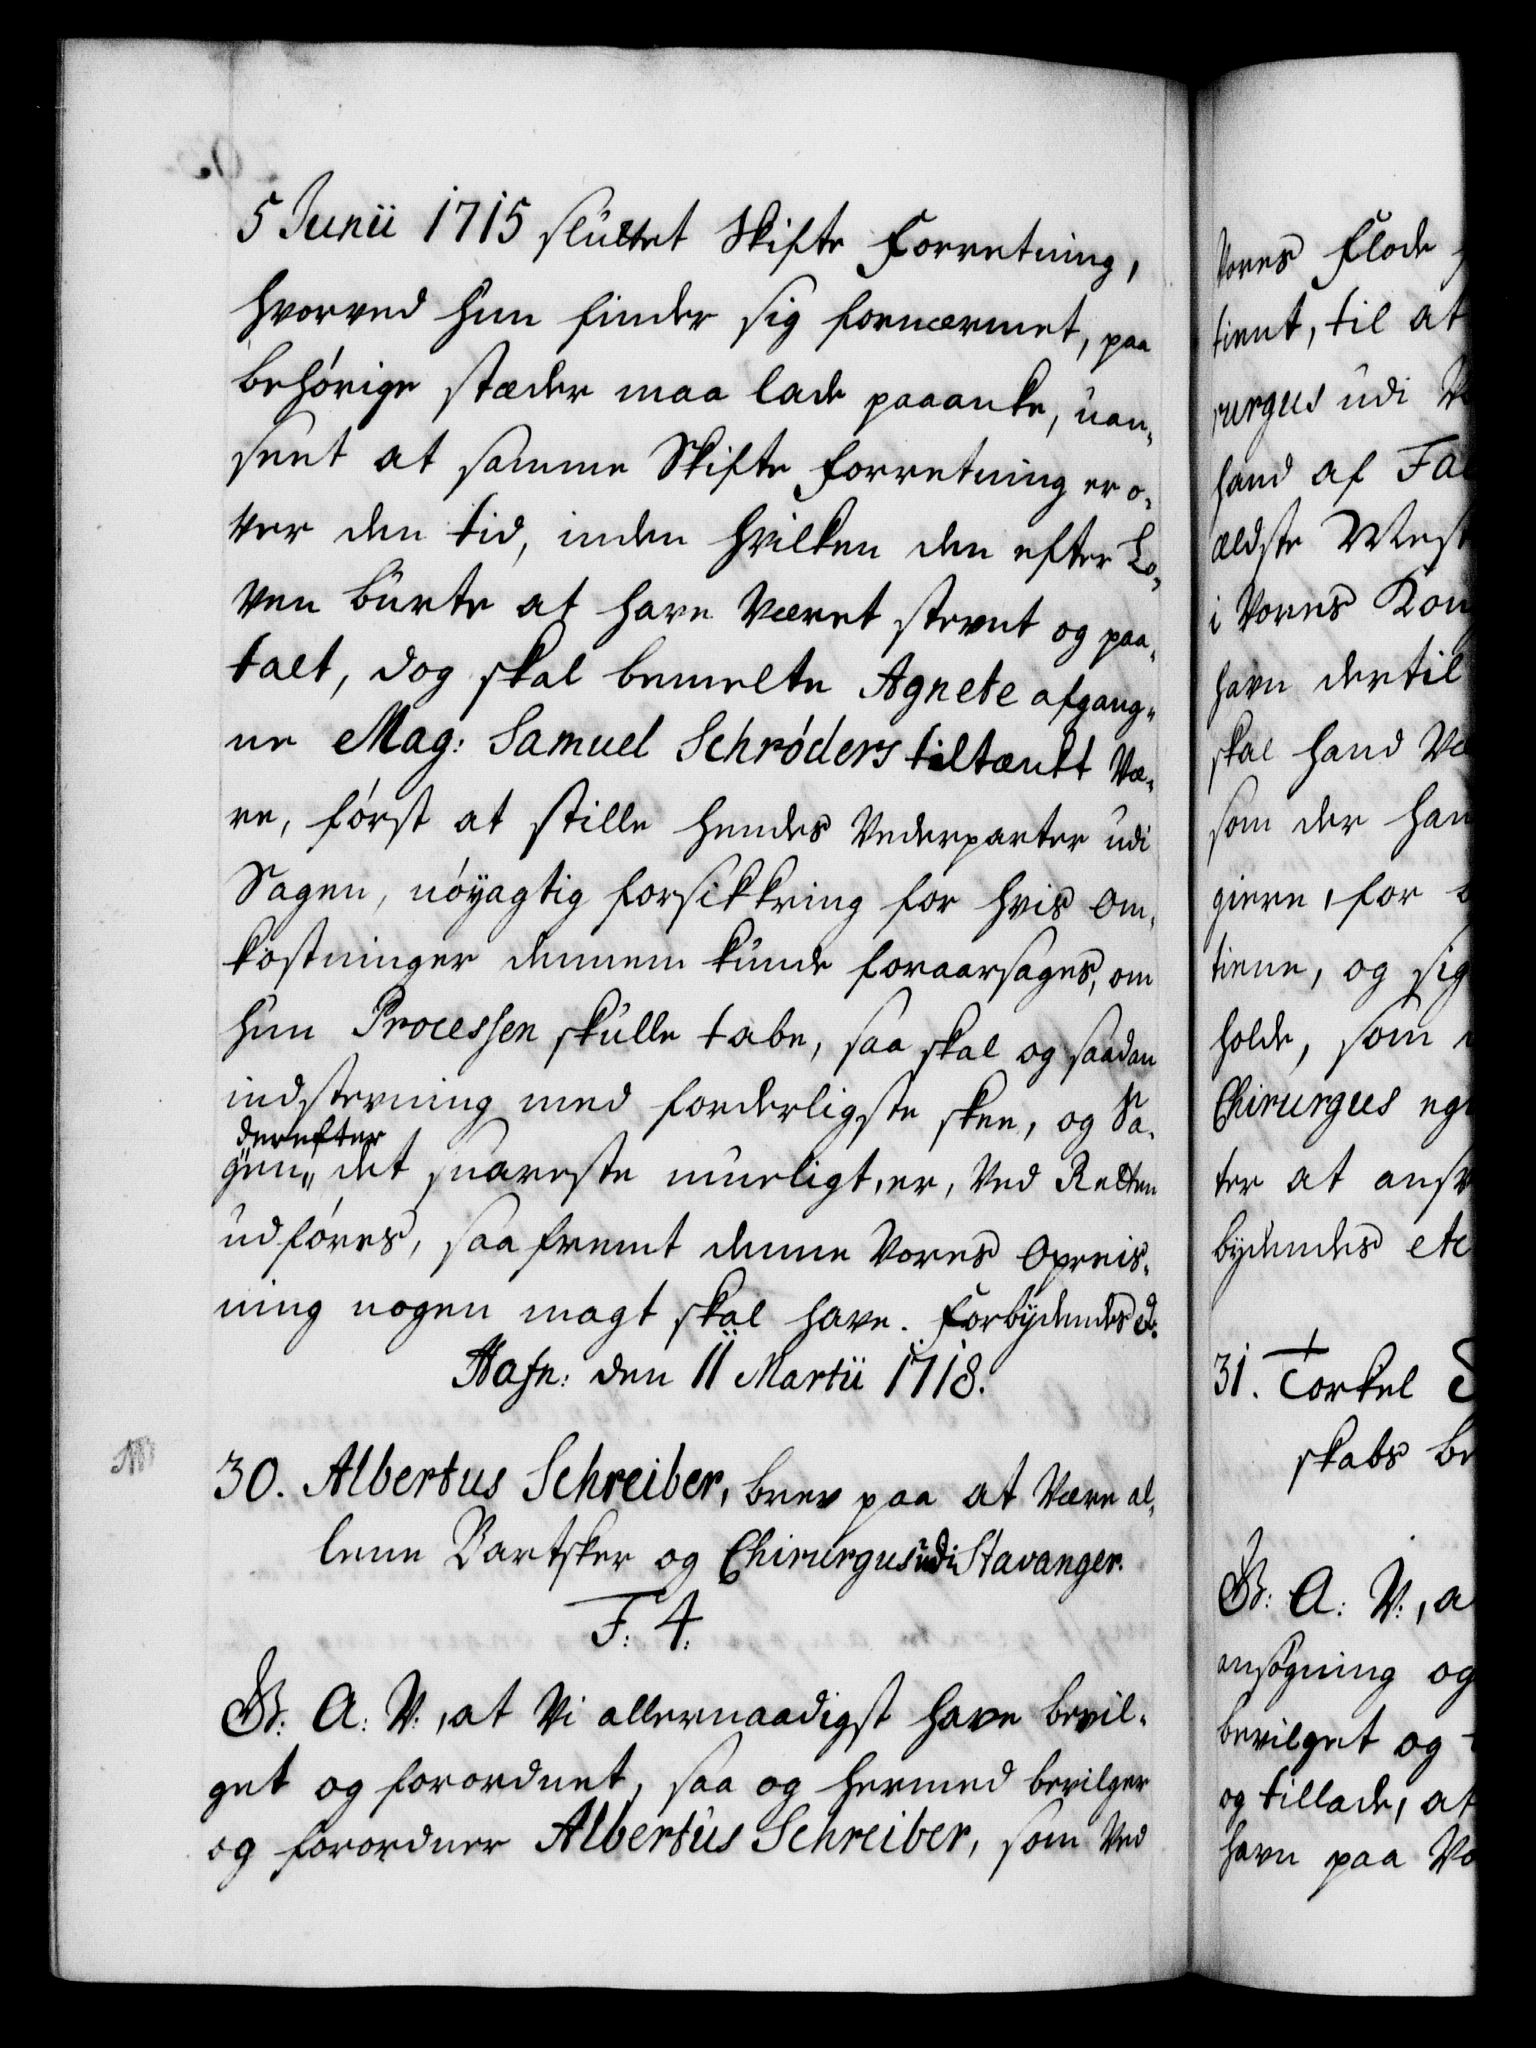 5 Junii 1715 sluttet Skifte Forretning,
hvorved hun finder sig fornærmet, paa
behörige stæder maa lade paaanke, uan-
seet at samme Skifte forretning er o-
ver den tid, inden hvilken den efter Lo-
ven burte at have været stevnt og paa-
talt, dog skal bemelte Agnete afgang-
ne Mag: Samuel Schröders tiltænkt væ-
re, först at stille hendes Vederparter udi
Sagen, nöyagtig forsikkring for hvis om-
kostninger dennem kunde foraarsages, om
hun Processen skulle tabe, saa skal og saadan
indstevning med forderligste skee, og Sa-
derefter
gen„ det snareste mueligt, er, ved Retten
udföres, saafremt denne Vores Opreis-
ning nogen magt skal have. Forbydendes &:
Hafn: den 11 Martii 1718.
30. Albertus Schreiber, brev paa at være al-
lene Bartsker og Chirurgus udi Stavanger.
F: 4.
G: A: V:, at Vi allernaadigst have bevil-
get og forordnet, saa og hermed bevilger
og forordner Albertus Schreiber, som ved
Vores Flode
tient, til at
rurgus udi
haud af
ældste
i Vores
havn dertil
skal hand
som der
giere, for
tiene, og sig
holde, som
Chirurgus
ter at
bydendes etc
31. Torkel
skabs
G: A: V:, a
ansögning og
bevilget og
og tillade, at
havn paa